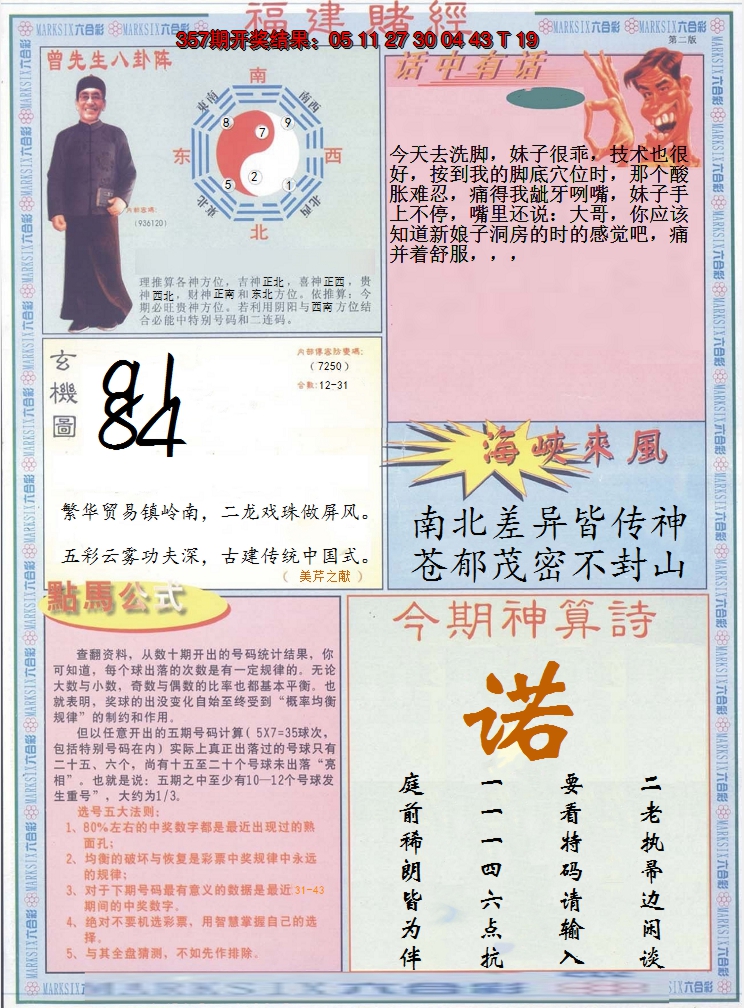 福建賭經
357期开奖结果：05 11 27 30 04 43 T 19
MARKSIX六合彩
第二版
曾先生八卦阵
南
东南
西南
8
9
7
东
西
5
2
1
东北
西北
北
内部密碼:
(936120)
理推算各神方位，吉神正北，喜神正西，贵
神西北，财神正南和东北方位。依推算：今
期必旺贵神方位。若利用阴阳与西南方位结
合必能中特别号码和二连码。
话中有话
今天去洗脚，妹子很乖，技术也很
好，按到我的脚底穴位时，那个酸
胀难忍，痛得我龇牙咧嘴，妹子手
上不停，嘴里还说：大哥，你应该
知道新娘子洞房的时的感觉吧，痛
并着舒服，，，
玄機圖
91
84
（7250）
合数:12-31
繁华贸易镇岭南，二龙戏珠做屏风。
五彩云雾功夫深，古建传统中国式。
（ 美芹之献 ）
海峽來風
南北差异皆传神
苍郁茂密不封山
點馬公式
查翻资料，从数十期开出的号码统计结果，你
可知道，每个球出落的次数是有一定规律的。无论
大数与小数，奇数与偶数的比率也都基本平衡。也
就表明，奖球的出没变化自始至终受到“概率均衡
规律”的制约和作用。
但以任意开出的五期号码计算( 5X7=35球次，
包括特别号码在内)实际上真正出落过的号球只有
二十五、六个，尚有十五至二十个号球未出落“亮
相”。也就是说：五期之中至少有10—12个号球发
生重号”，大约为1/3。
选号五大法则：
1、80%左右的中奖数字都是最近出现过的熟
面孔；
2、均衡的破坏与恢复是彩票中奖规律中永远
的规律；
3、对于下期号码最有意义的数据是最近31-43
期间的中奖数字。
4、绝对不要机选彩票，用智慧掌握自己的选
择。
5、与其全盘猜测，不如先作排除。
今期神算詩
诺
二老执帚边闲谈
要看特码请输入
一一一四六点抗
庭前稀朗皆为伴